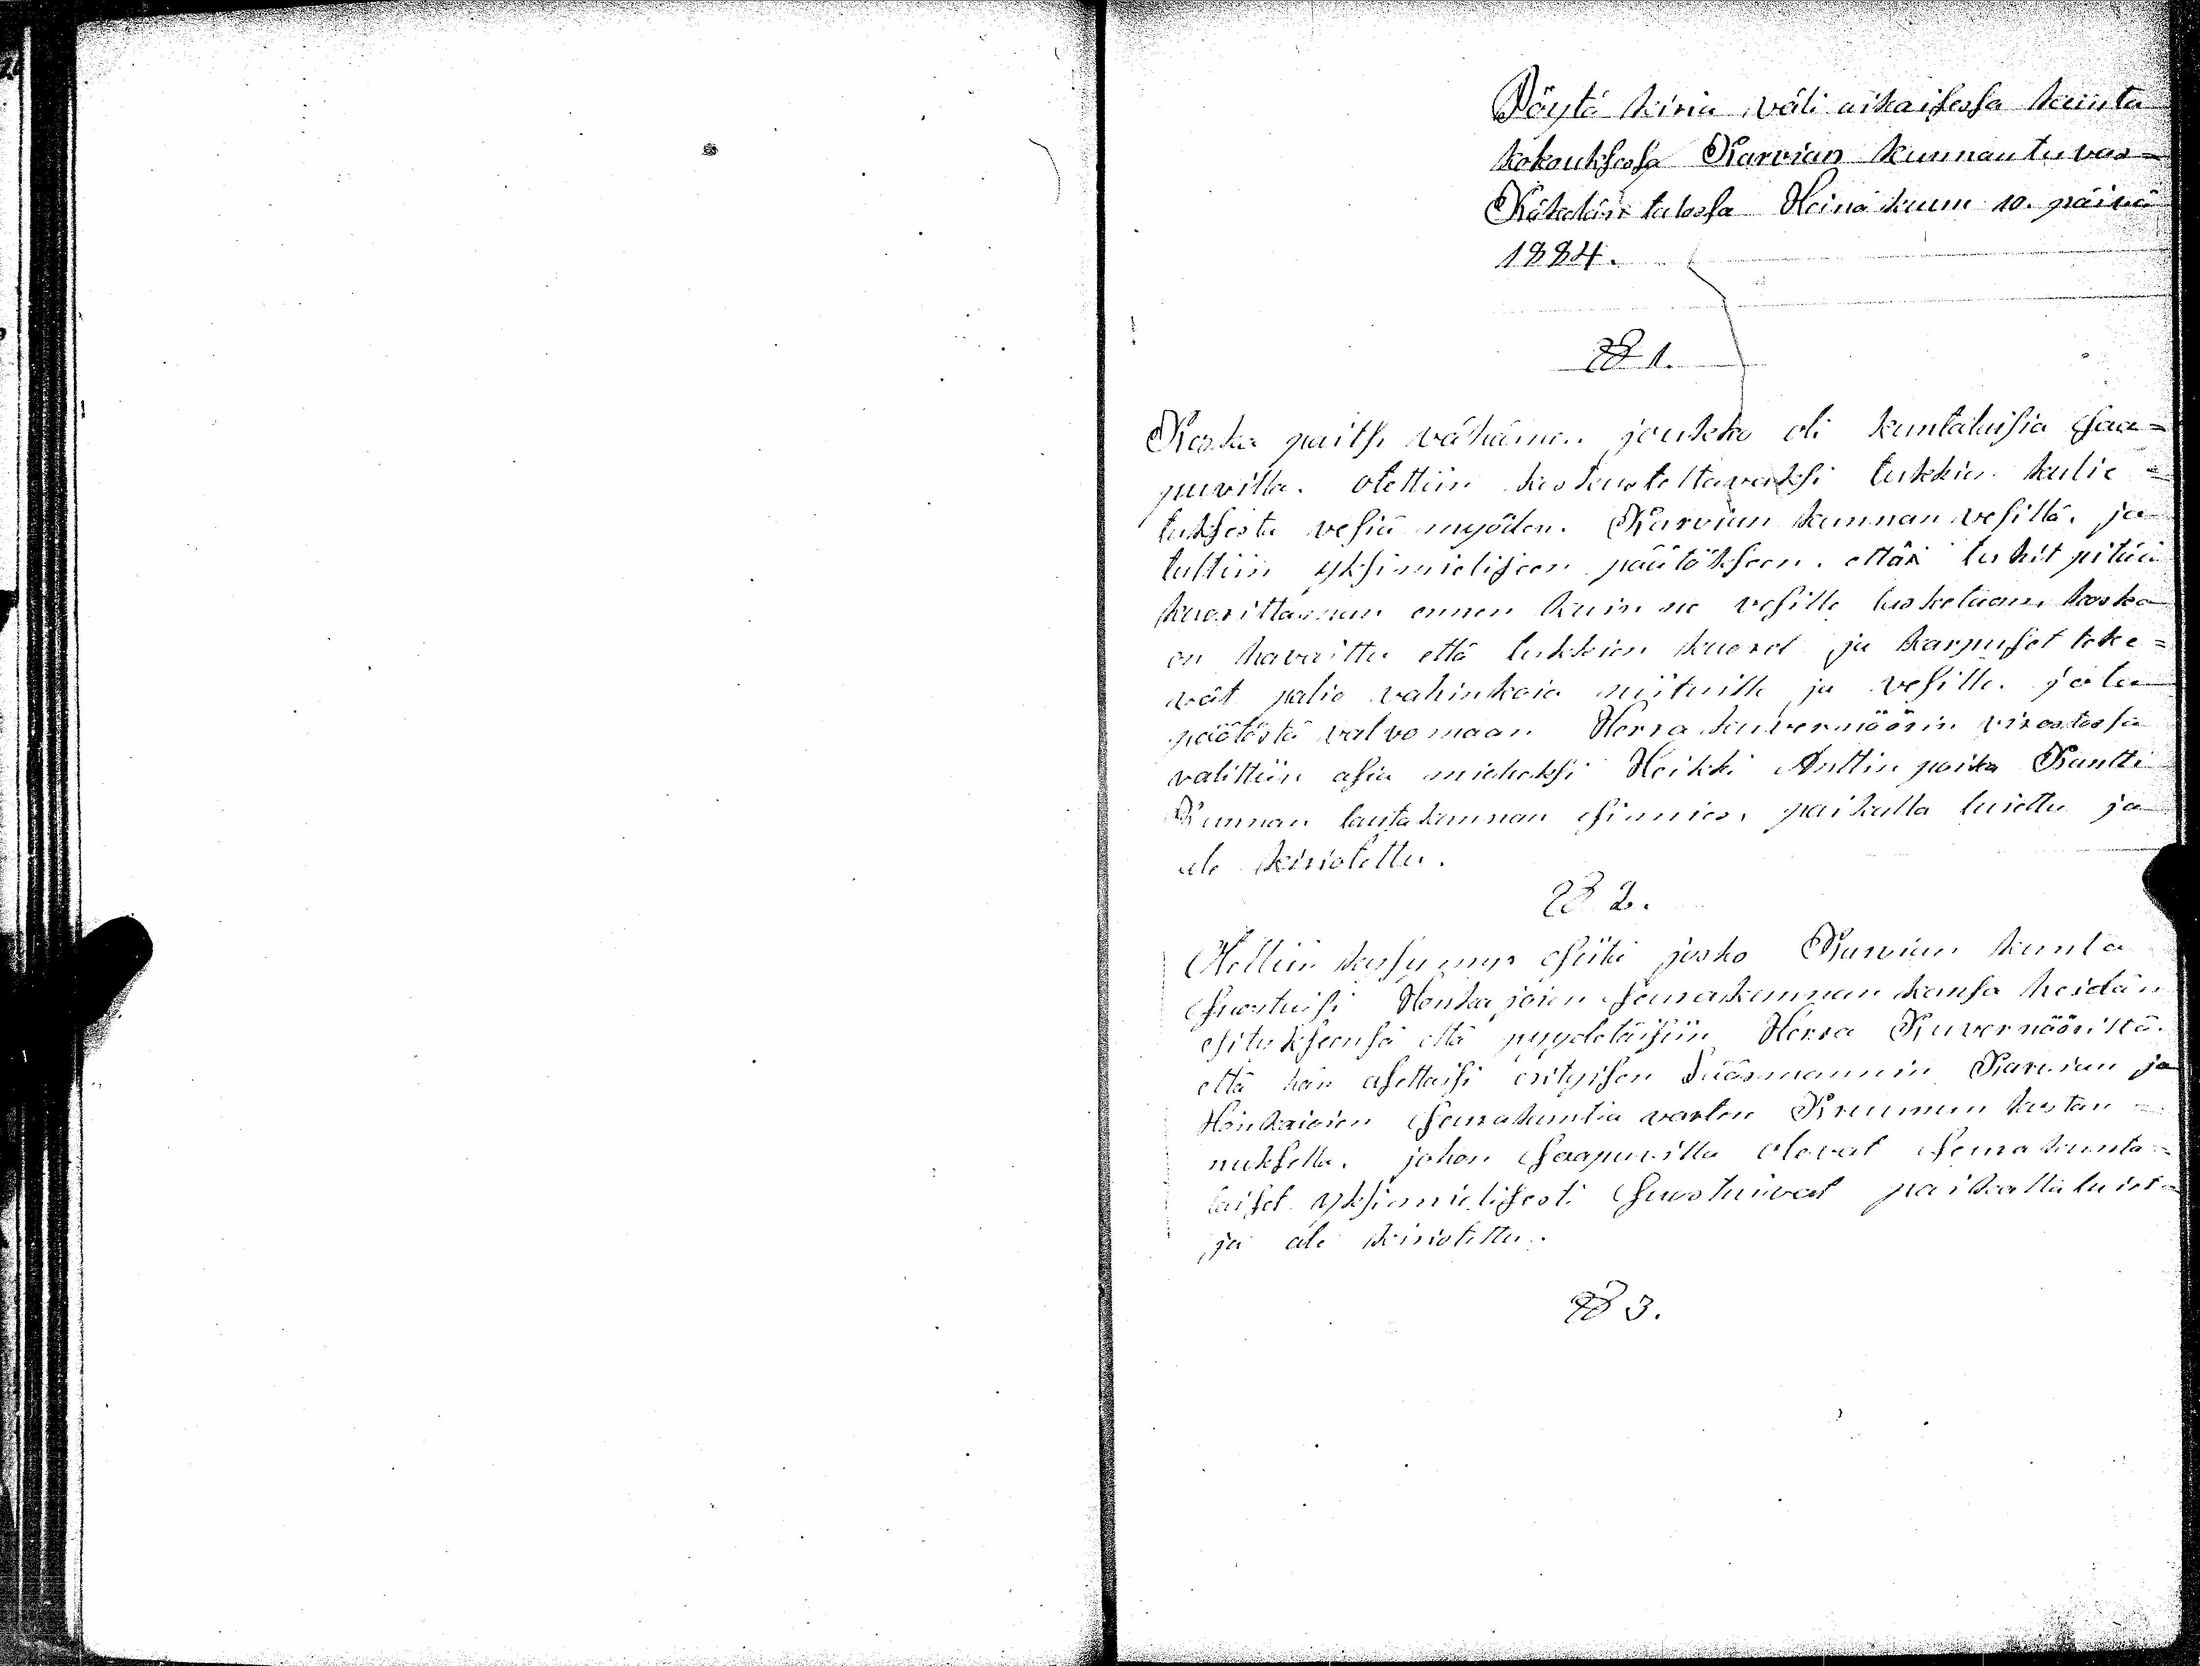 Pöytä kiria väli aikaisessa kunta
kokouksessa Karvian kunnan tuvas-
talossa Heinä kuun 10. päivä
1884.
§ 1.
Koska paitsi vähänen joukko oli kuntalaisia saa=
puvilla. otettiin keskusteltavaksi tukkien kulie=
tuksesta vesiä myöden. Karvian kunnan vesillä. ja
tultiin yksimieliseen päätökseen. että tukit pitää
kuorittaman ennen kuin ne vesille lasketaan, koska
on havaittu että tukkien kuoret ja karpuset teke=
vät palio vahinkoia niituille ja vesille. jota
päätöstä valvomaan Herra kuvernöörin virastossa
valittiin asia mieheksi Heikki Anttin poika Kantti
Kunnan lautakunnan esimies. paikalla luettu ja
ale kiriotettu.
§ 2.
Otettiin kysymys esiite josko Karvian kunta
suostuisi Honkajoien seurakunnan kansa heidän
esitykseensä että pyydetäisiin Herra Kuvernööristä.
että hän asettaisi erityisen Läänmannin Karvian ja
Honkaioien seurakuntia varten Kruunun kustan=
nuksella. johon saapuvilla olevat seurakunta=
laiset yksimielisesti suostuivat paikalla luet=
ja ale kiriotettu.
§ 3.